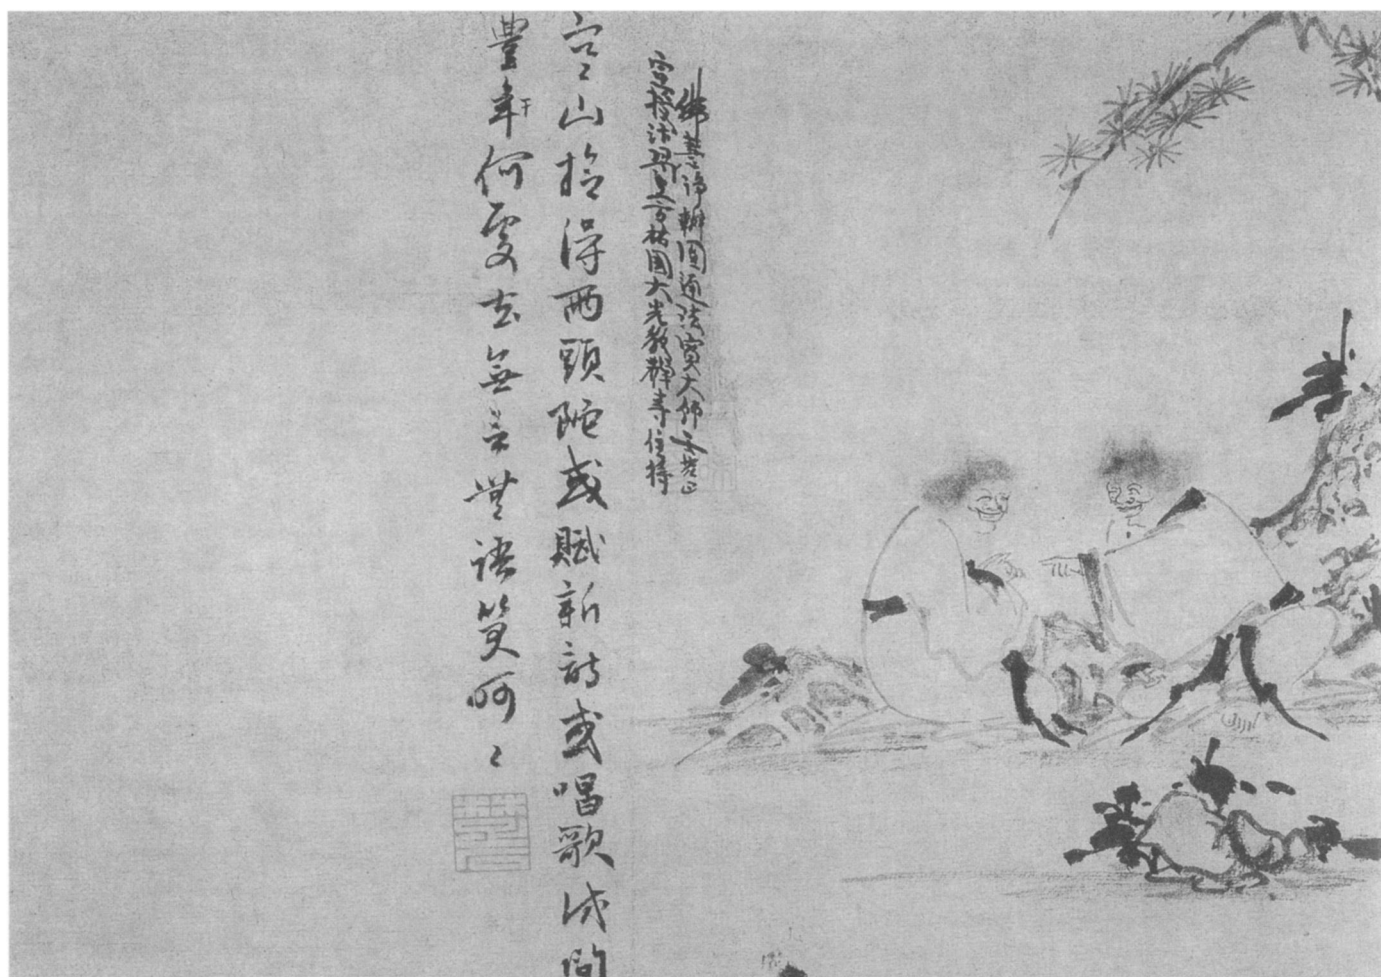 佛慧淨辯圓通法寶大師
宣授汴梁上方祐国大光教禅寺住持
寒山拾得兩頭陀或賦新詩或唱歌試問
豐年干何處去無言無語笑呵〻